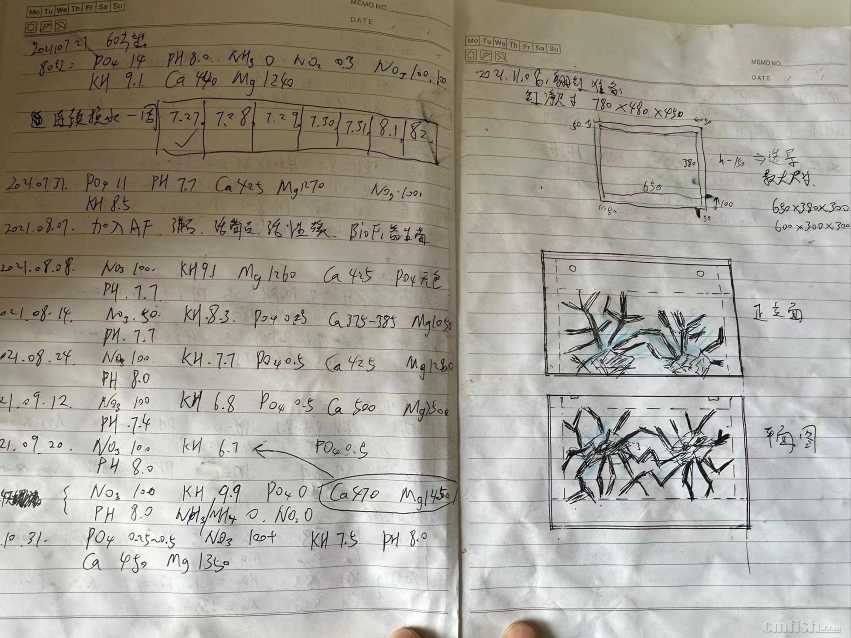 Mo Tu We Th Fr Sa Su
MEMO NO.
DATE
2021.07.27 60
80缸: PO4 14 PH 8.0 NH3 0 NO2 0.3 NO3 100,100
KH 9.1 Ca 440 Mg 1240
连续换水一周 7.27. 7.28. 7.29. 7.30. 7.31. 8.1. 8.2.
2021.07.31. PO4 11 PH 7.7 Ca 425 Mg 1270 NO3 100.
KH 8.5
2021.08.07. 加入AF. BioFi
2021.08.08. NO3 100. KH 9.1 Mg 1260 Ca 425 PO4 无色
PH. 7.7
021.08.14. NO3. 50. KH.8.3. PO4 Ca 375-385 Mg 1050
PH. 7.7
021.08.24. NO3 100 KH.7.7 PO4 0.5 Ca 425 Mg 1280
PH 8.0
21.09.12. NO3 100 KH 6.8 PO4 0.5 Ca 500 Mg 1500
PH 7.4
21.09.20. NO3 100 KH 6.7 PO4 0.5
PH 8.0
NO3 100 KH 9.9 PO4 0 Ca 470 Mg 1450
PH 8.0 NH3/NH4 0. NO2 0
10.31. PO4 0.25~0.5 NO3 100+ KH 7.5 PH 8.0
Ca 450 Mg 1350
Mo Tu We Th Fr Sa Su
MEMO NO.
DATE
2021.11.08. 翻缸准备:
缸净尺寸 780×480×450
380
650
100
50
h-150 ⇒ 造景
最大尺寸
650×380×300
600×300×300
正立面
平面图
cmfish.com